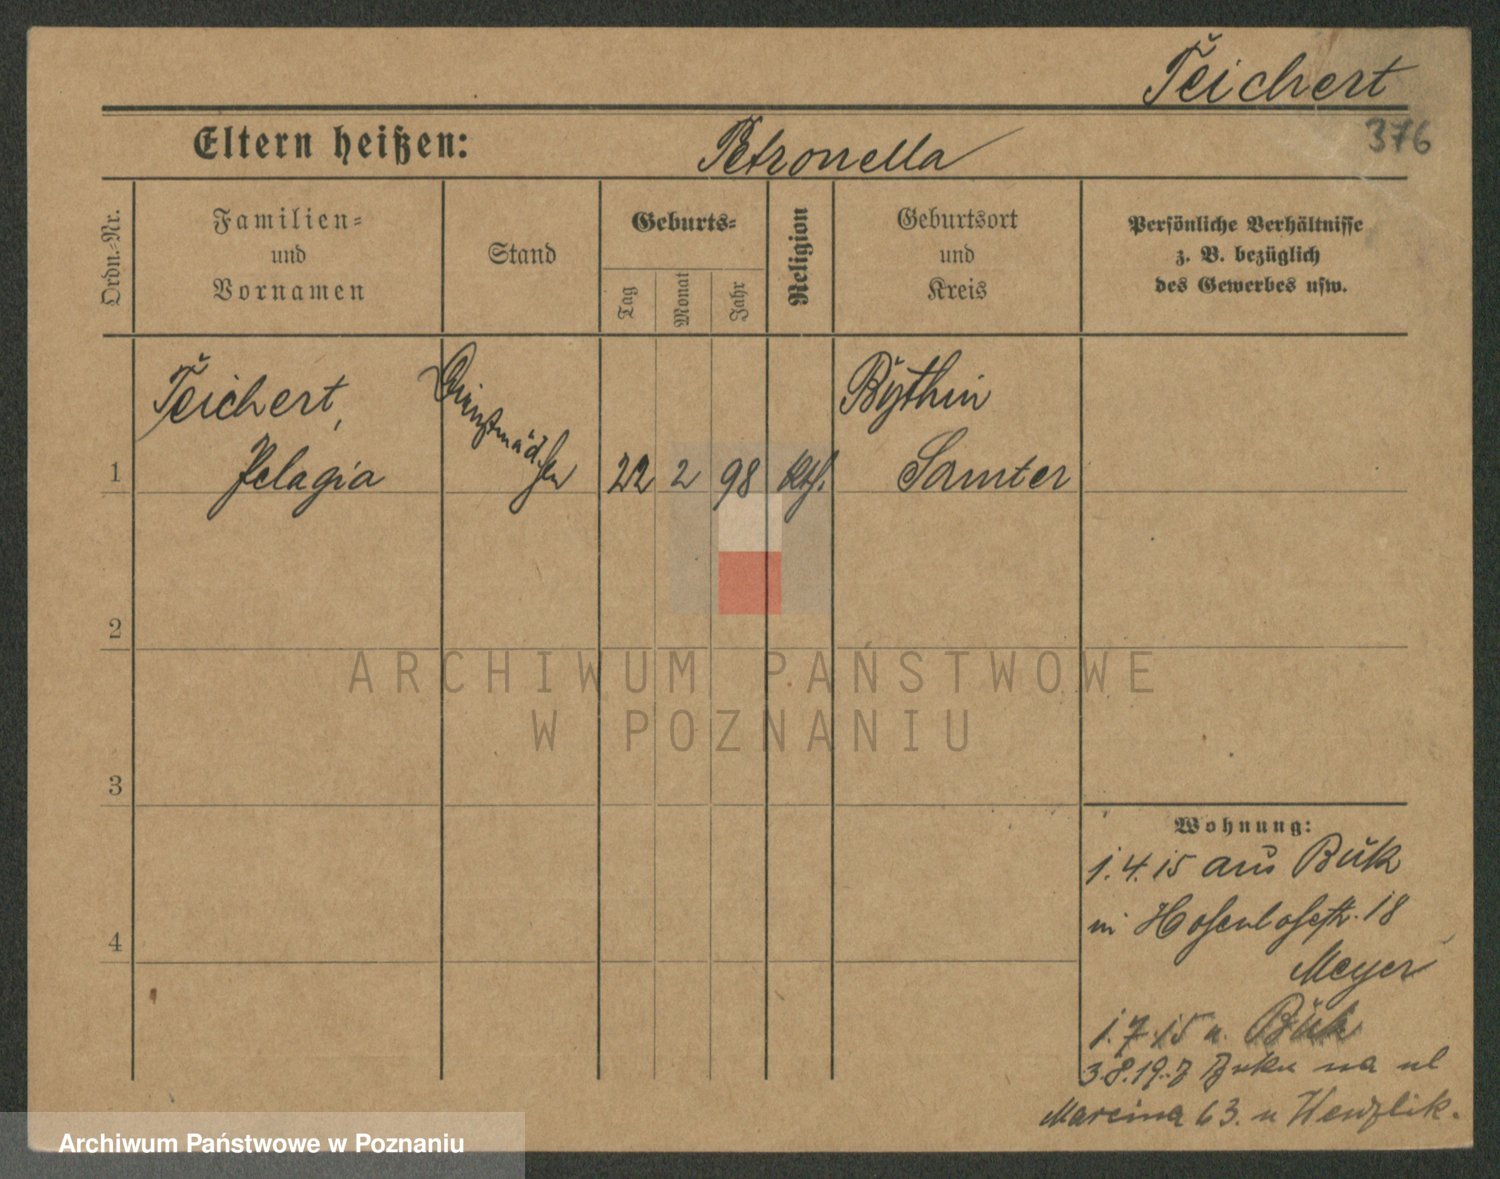 Teichert
376
Eltern heißen: Petronella
Ordn.-Nr.
Familien-
und
Vornamen
Stand
Geburts-
Tag
Monat
Jahr
Religion
Geburtsort
und
Kreis
Persönliche Verhältnisse
z. B. bezüglich
des Gewerbes usw.
1
Teichert,
Pelagia
Dienstmädchen
22 2 98 kth.
Bythin
Samter
2
3
4
Wohnung:
1.4.15 aus Buk
in Hohenlohestr. 18
Meyer
1.7.15 n. Buk
3.8.19. z Buku na ul
Marcina 63. u
ARCHIWUM PAŃSTWOWE
W POZNANIU
Archiwum Państwowe w Poznaniu